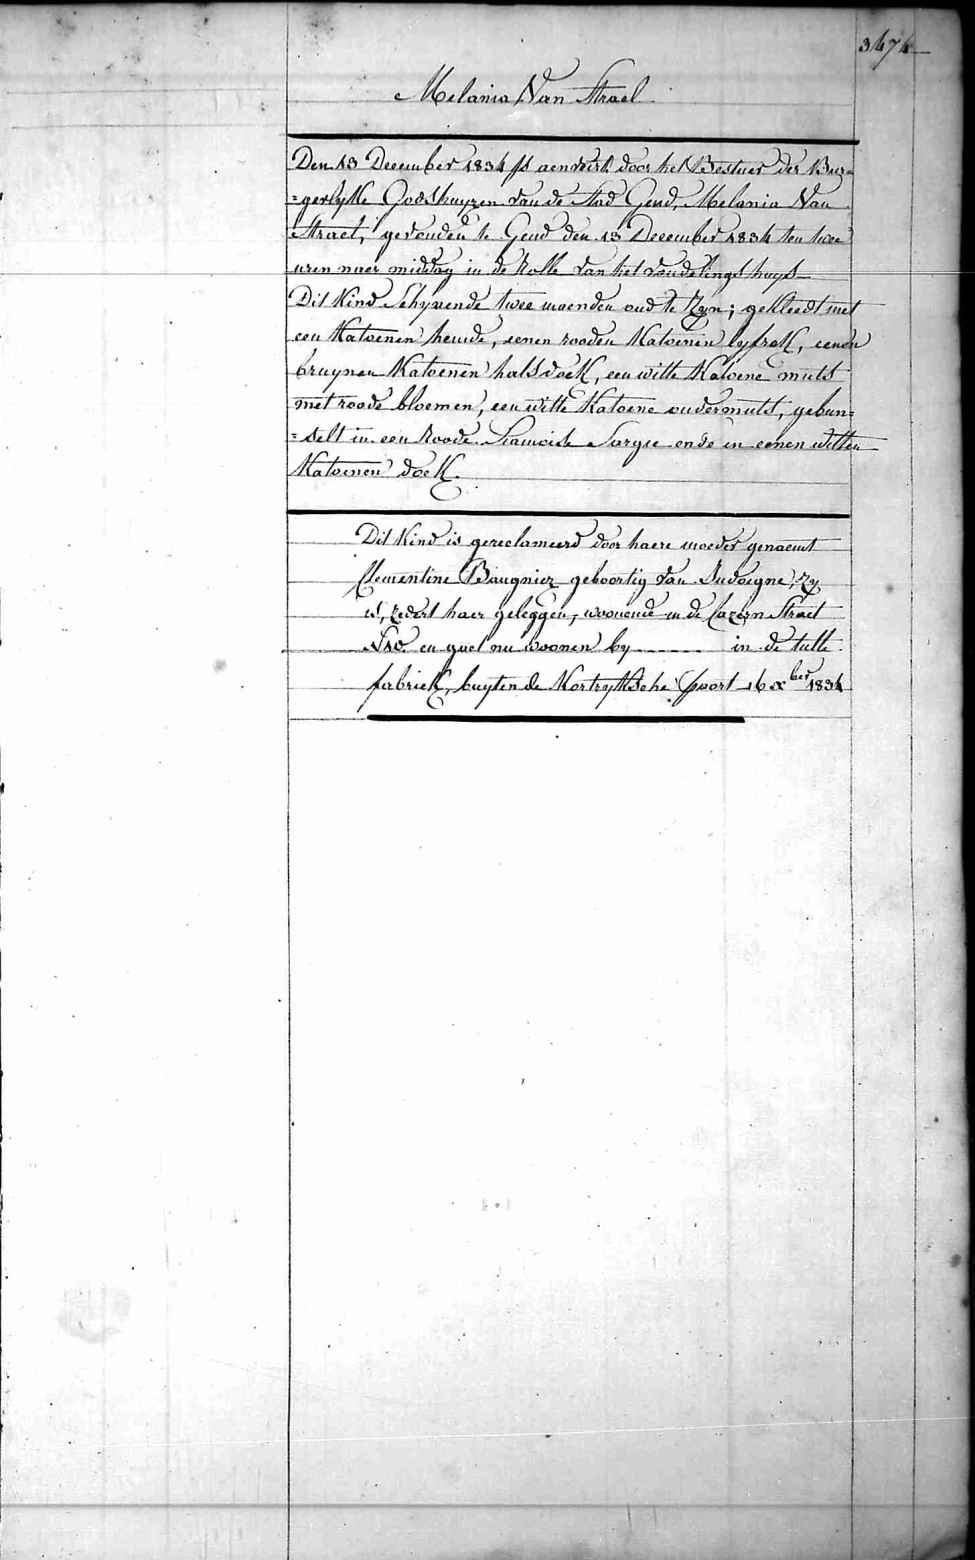 3474
Melania Van Strael
Den 13 December 1834 is aenveird door het Bestuer der Bur=
=gerlyke Godshuyzen van de Stad Gend, Melania Van
Strael, gevonden te Gend den 13 December 1834 ten twee
uren naer middag in de Rolle van het vondelingshuys
Dit Kind Schynende twee maenden oud te Zyn; gekleedt met
een Katoenen hemde, eenen rooden Katoenen lyfrok, eenen
bruynen Katoenen halsdoek, een witte Katoene muts
met roode bloemen, een witte Katoene ondermuts, gebun=
=delt in een Roode Siamoise Sargie ende in eenen witten
Katoenen doek.
Dit Kind is gereclameerd door haere moeder genaemt
Clementine Baugniez geboortig van Judoigne, Zy
is, zedert haer geleggen, woonende in de Cazern Straet
en gaet nu woonen by ...... in de tulle
fabriek, buyten de Kortryksche Poort 16 xber 1834